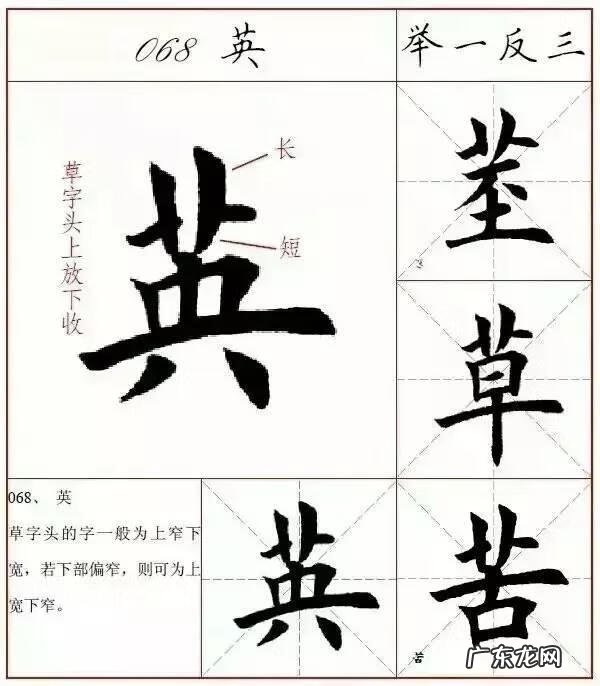 068 英
举一反三
草字头上放下收
长
短
英
茎
草
068、 英
草字头的字一般为上窄下
宽，若下部偏窄，则可为上
宽下窄。
英
苦
苦
广东龙网